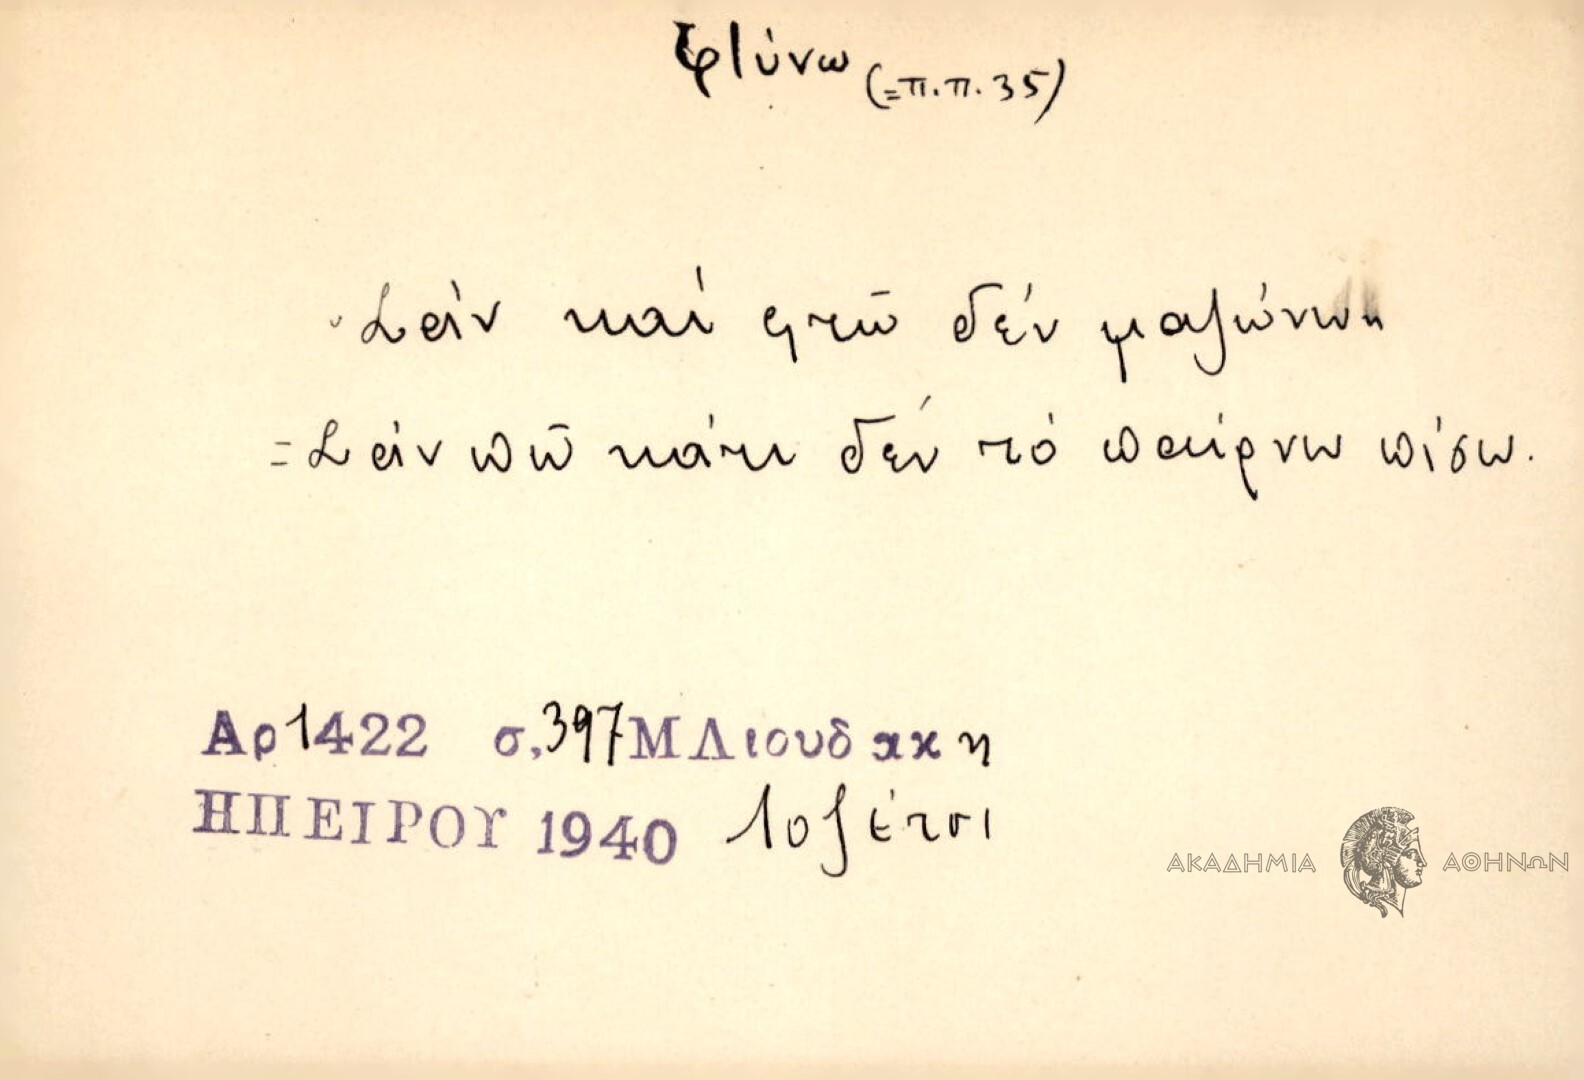 φτύνω (=π.π.35)
Σάν καί φτῶ δέν μαζώνω
=Σάν πῶ κάτι δέν τό παίρνω πίσω.
Αρ 1422 σ. 397 Μ Λιουδακη
ΗΠΕΙΡΟΥ 1940 Λοζέτσι
ΑΚΑΔΗΜΙΑ ΑΘΗΝΩΝ